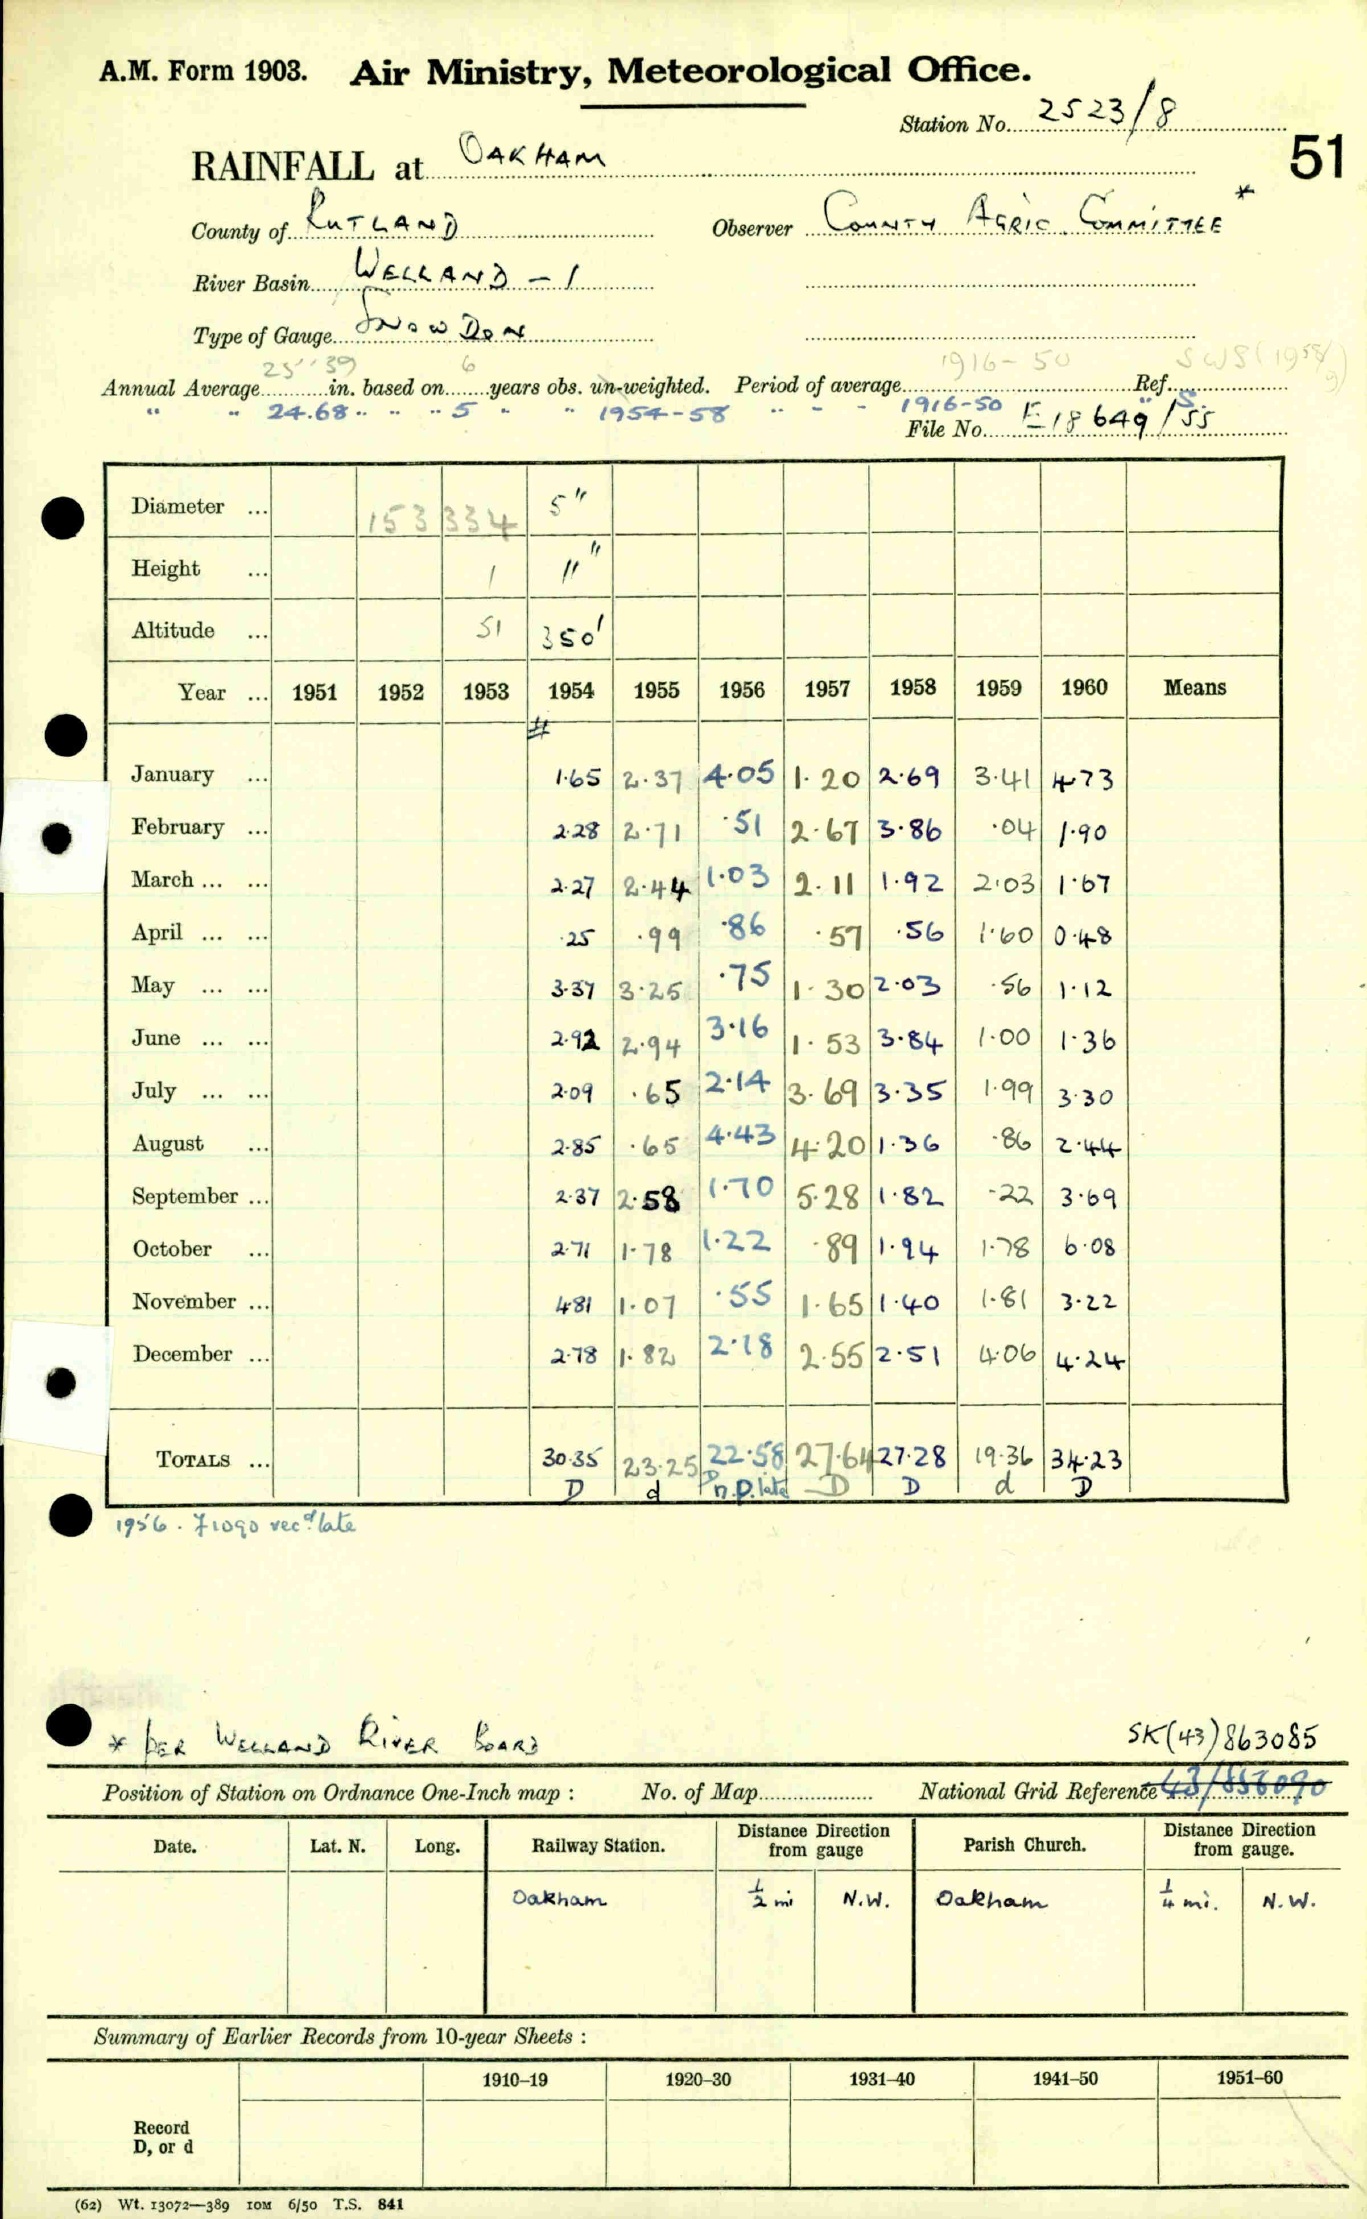 A.M. Form 1903. Air Ministry, Meteorological Office.
Station No. 2523/8
51
RAINFALL at OAKHAM
County of RUTLAND Observer COUNTY AGRIC. COMMITTEE *
River Basin WELLAND - 1
Type of Gauge SNOWDON
Annual Average 25"39 in. based on 6 years obs. un-weighted. Period of average 1916-50 Ref. SWS (1958/9)
" " 24.68 " " " 5 " " 1954-58 " - - 1916-50 " S.
File No. E18649/55
Diameter ... 153 334 5"
Height ... 1 11"
Altitude ... 51 350'
Year ... 1951 1952 1953 1954 1955 1956 1957 1958 1959 1960 Means
#
January ... 1.65 2.37 4.05 1.20 2.69 3.41 4.73
February ... 2.28 2.71 .51 2.67 3.86 .04 1.90
March ... ... 2.27 2.44 1.03 2.11 1.92 2.03 1.67
April ... ... .25 .99 .86 .57 .56 1.60 0.48
May ... ... 3.37 3.25 .75 1.30 2.03 .56 1.12
June ... ... 2.92 2.94 3.16 1.53 3.84 1.00 1.36
July ... ... 2.09 .65 2.14 3.69 3.35 1.99 3.30
August ... 2.85 .65 4.43 4.20 1.36 .86 2.44
September ... 2.37 2.58 1.70 5.28 1.82 .22 3.69
October ... 2.71 1.78 1.22 .89 1.94 1.78 6.08
November ... 4.81 1.07 .55 1.65 1.40 1.81 3.22
December ... 2.78 1.82 2.18 2.55 2.51 4.06 4.24
TOTALS ... 30.35 23.25 22.58 27.64 27.28 19.36 34.23
D d D n.p. late D D d D
1956. F1090 rec.d late
* PER WELLAND RIVER BOARD SK(43)863085
Position of Station on Ordnance One-Inch map : No. of Map National Grid Reference 43/858090
Date. Lat. N. Long. Railway Station. Distance Direction from gauge Parish Church. Distance Direction from gauge.
Oakham 1/2 mi N.W. Oakham 1/4 mi. N.W.
Summary of Earlier Records from 10-year Sheets :
1910–19 1920–30 1931–40 1941–50 1951–60
Record
D, or d
(62) Wt. 13072—389 10M 6/50 T.S. 841